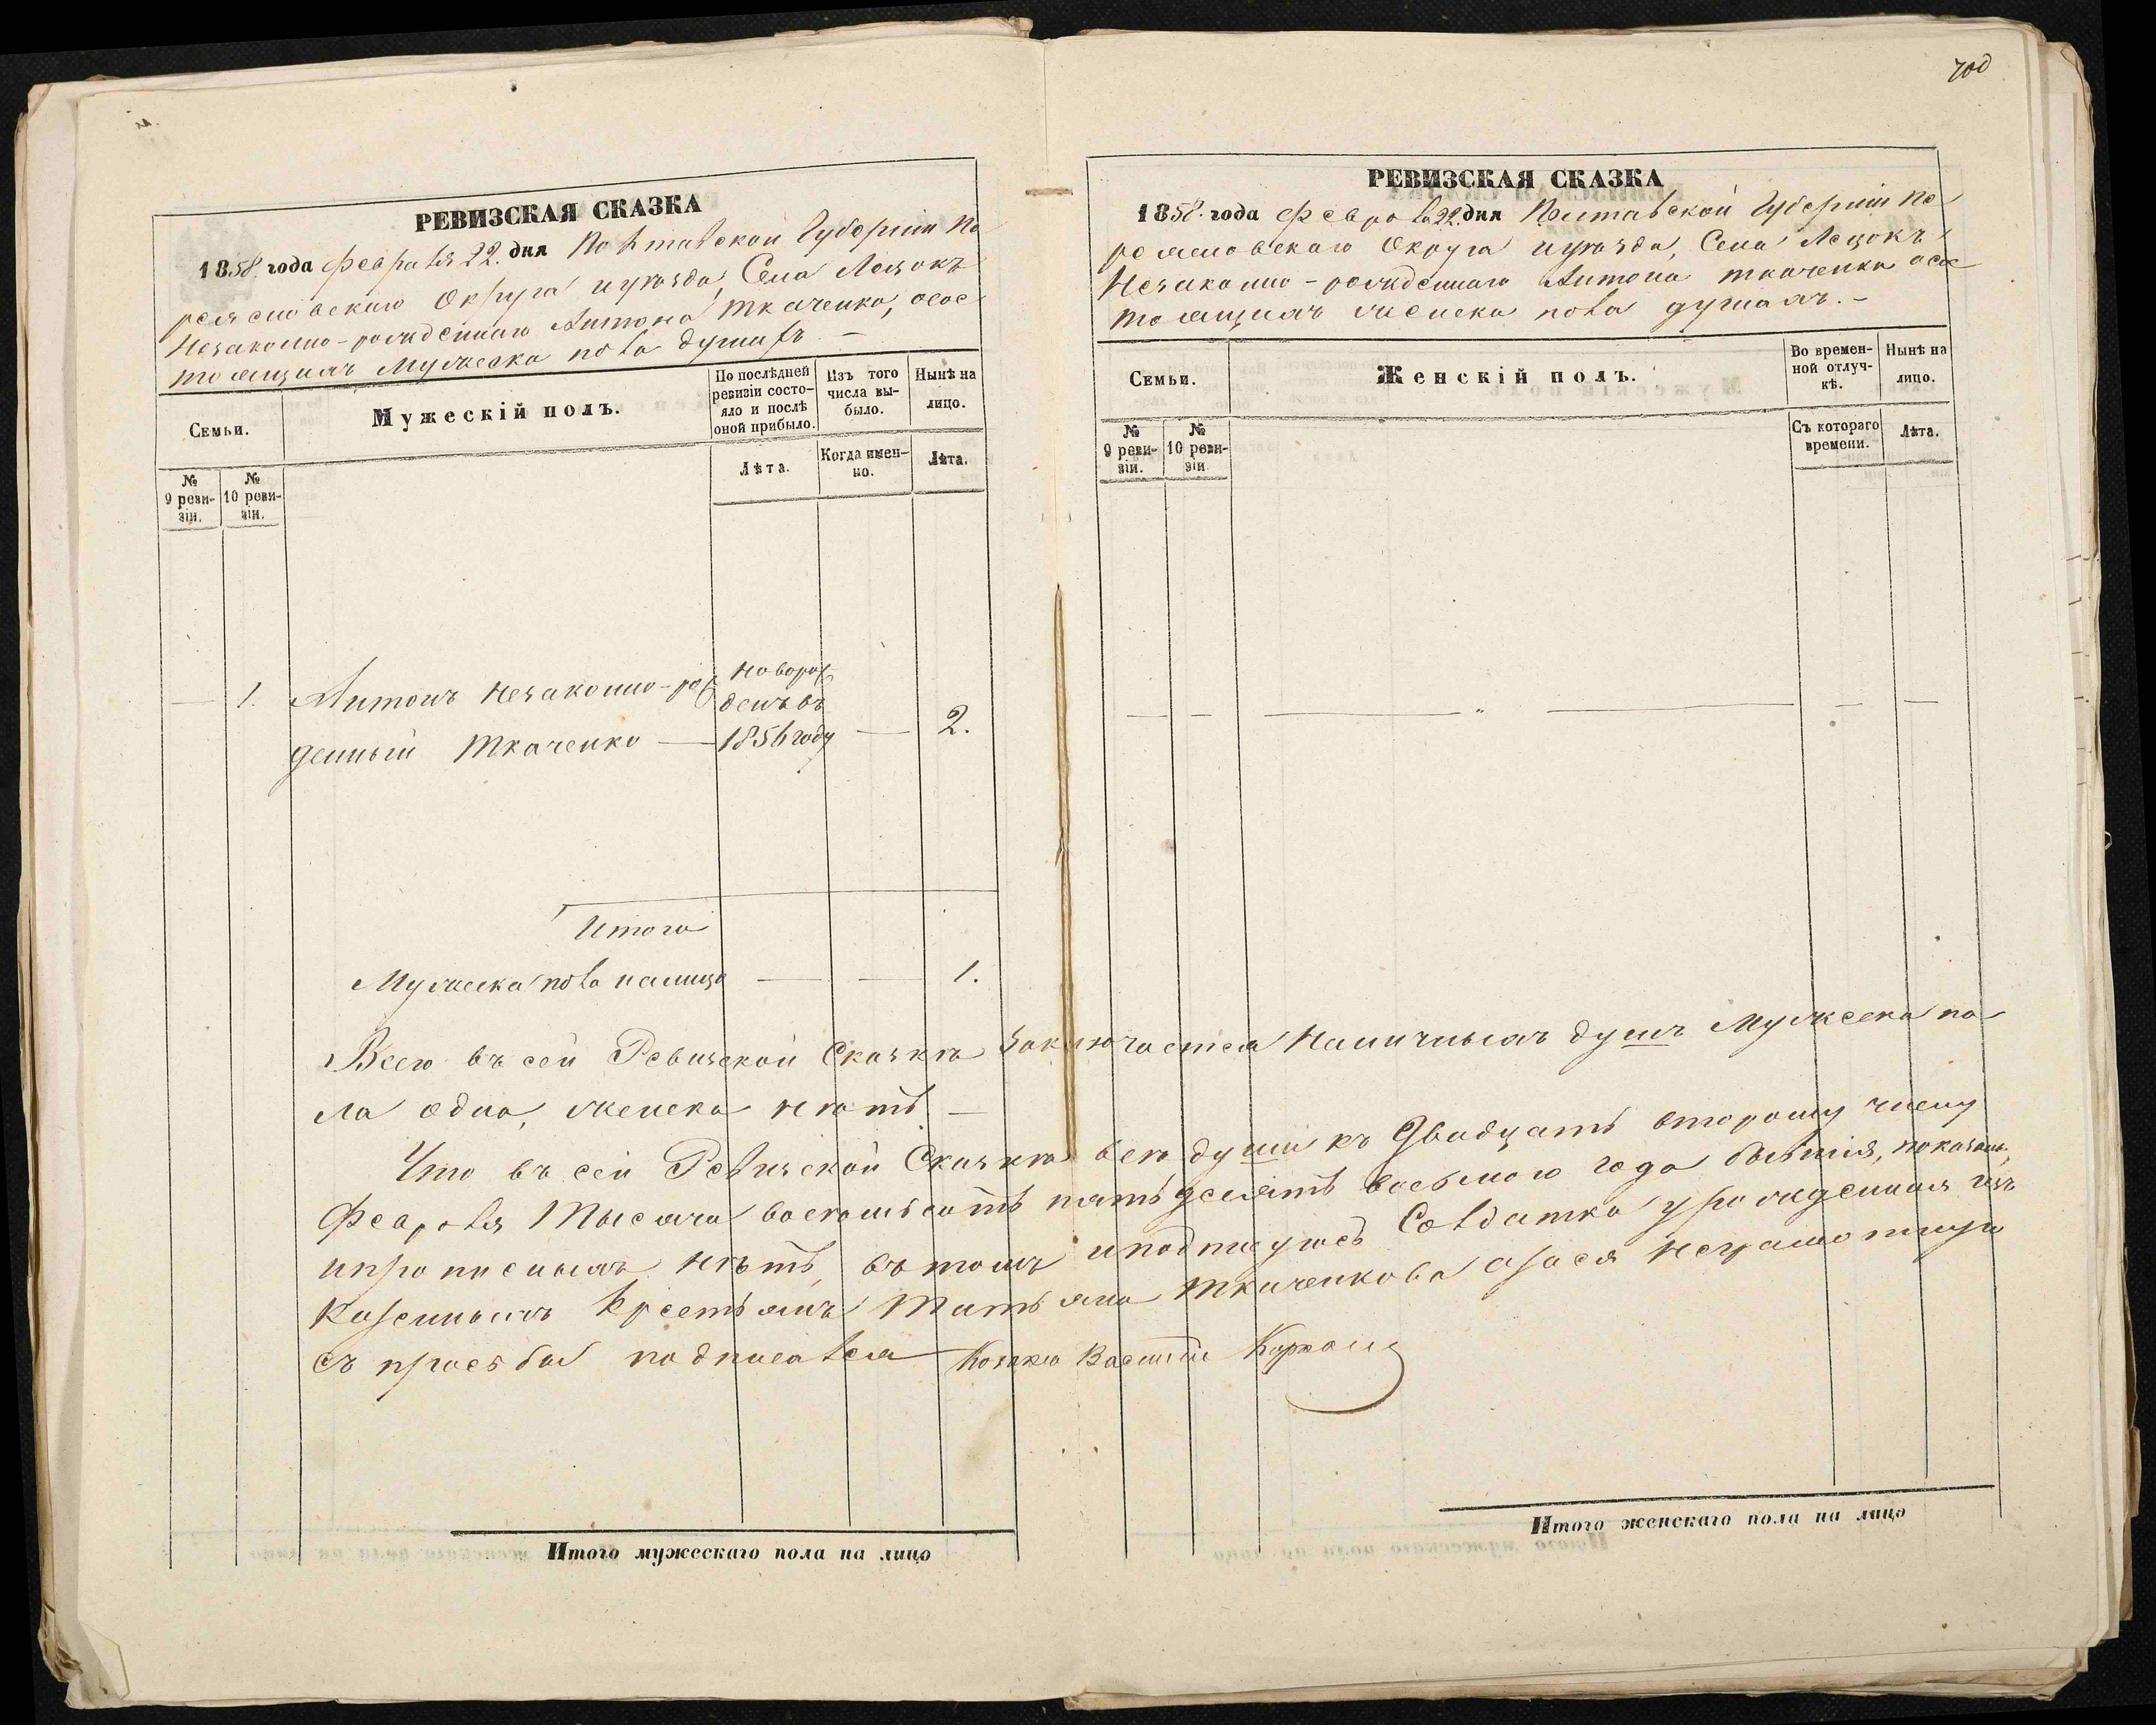 РЕВИЗСКАЯ СКАЗКА
1858. года Февраля 22. дня Полтавской Губерніи Пе
реяславскаго Округа и уѣзда, Села Лецокъ
Незаконно-рожденнаго Антона Ткаченка, о сос
тоящихъ Мужеска пола душахъ. –
Семьи.
Мужескій полъ.
По послѣдней ревизіи состо-
яло и послѣ оной прибыло.
Изъ того числа вы-
было.
Нынѣ на лицо.
№ 9 реви-
зіи.
№ 10 реви-
зіи.
Лѣта.
Когда имен-
но.
Лѣта.
— 1. Антонъ незаконно-рож
денный Ткаченко —
новорож
денъ въ
1856 году
— 2.
Итого
Мужеска пола налицо — — 1.
Всего въ сей Ревизской Сказкѣ заключается наличныхъ душъ Мужеска по
ла одна, женска нѣтъ —
Что въ сей Ревизской Сказкѣ всѣ души къ Двадцать второму числу
Февраля Тысяча восемьсотъ пятьдесятъ восьмаго года бытія, показаны,
и прописныхъ нѣтъ, въ томъ и подпишусь Солдатка урожденная изъ
Казенныхъ Крестьянъ Татьяна Ткаченкова а за ея неграмотную
съ прозьбы подписался Козакъ Василій
Итого мужескаго пола на лицо
700
РЕВИЗСКАЯ СКАЗКА
1858. года Февраля 22. дня Полтавской Губерніи Пе
реяславскаго Округа и уѣзда, Села Лецокъ
Незаконно-рожденнаго Антона Ткаченка о сос
тоящихъ женска пола душахъ. –
Семьи.
Женскій полъ.
Во времен-
ной отлуч-
кѣ.
Нынѣ на лицо.
№ 9 реви-
зіи.
№ 10 реви-
зіи
Съ котораго времени.
Лѣта.
— — — „ — — —
Итого женскаго пола на лицо